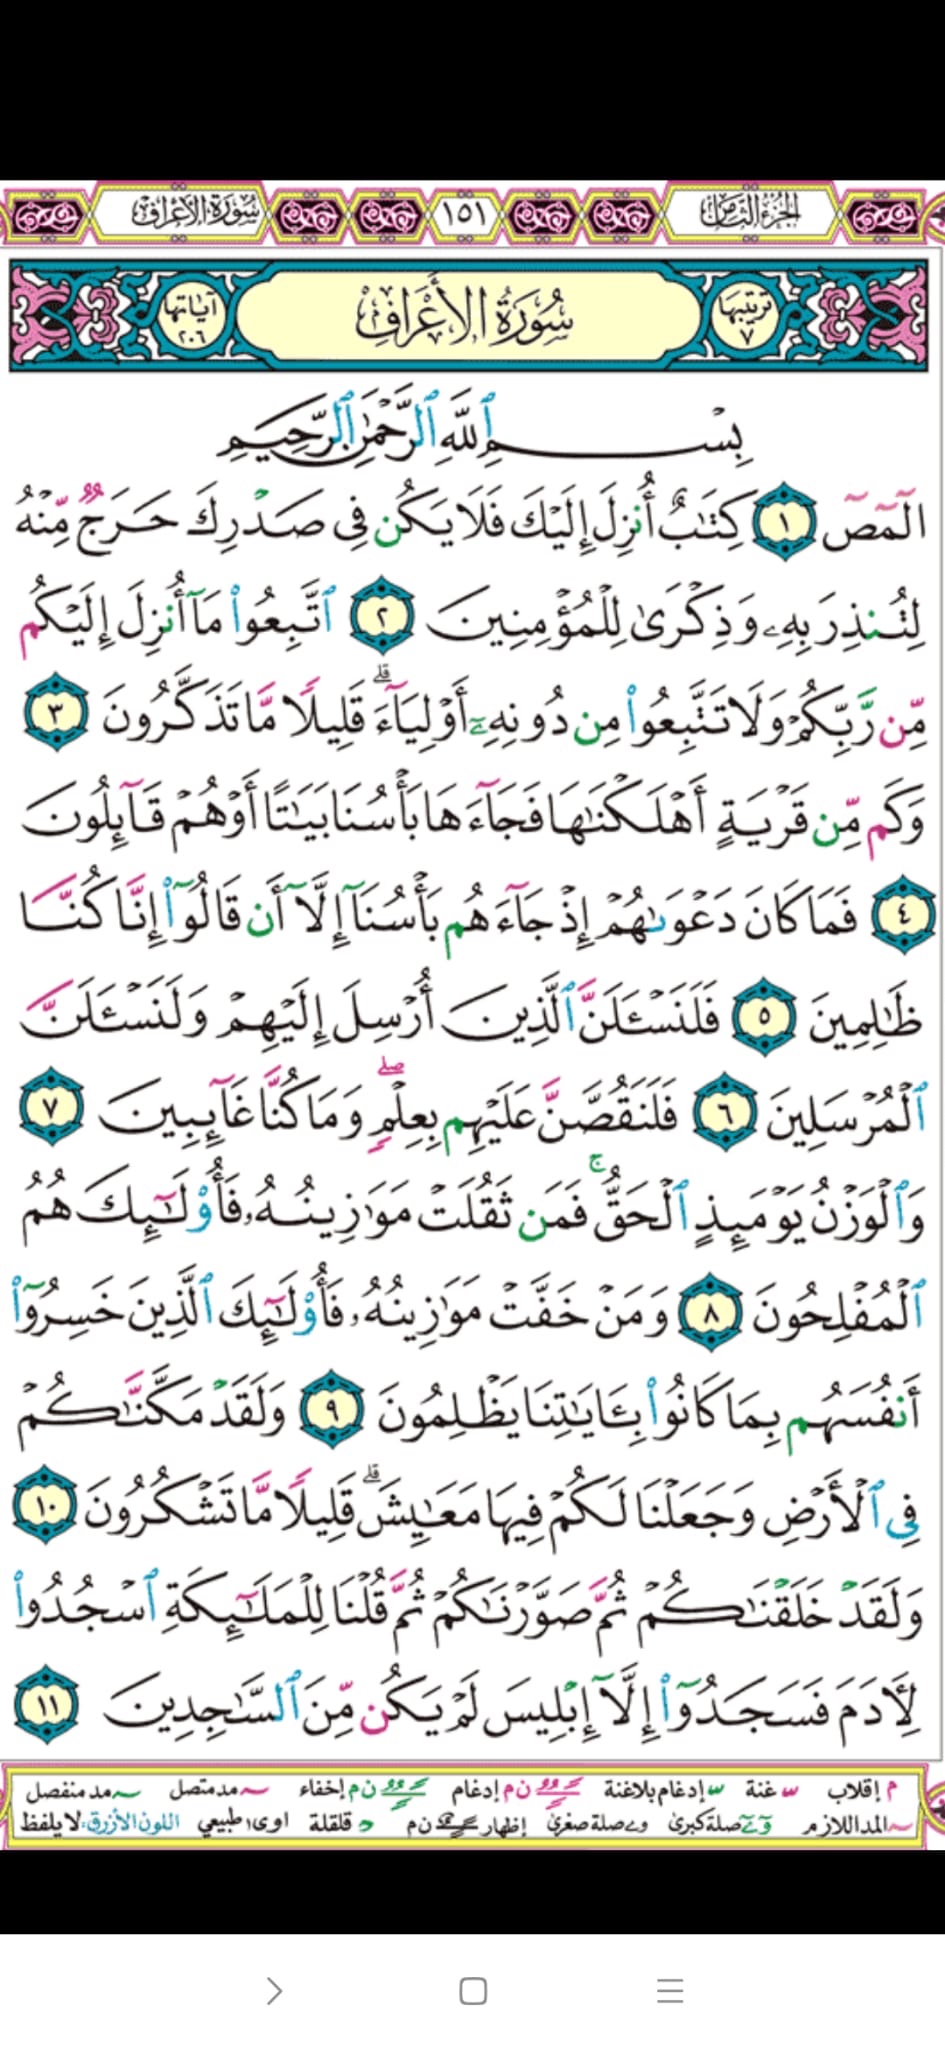 سُورَةُ الأَعْرَافِ ١٥١ الجُزْءُ الثَّامِنُ
تَرْتِيبُهَا ٧ سُورَةُ الأَعْرَافِ آيَاتُهَا ٢٠٦
بِسْمِ ٱللَّهِ ٱلرَّحْمَٰنِ ٱلرَّحِيمِ
الٓمٓصٓ ١ كِتَٰبٌ أُنزِلَ إِلَيْكَ فَلَا يَكُن فِى صَدْرِكَ حَرَجٌ مِّنْهُ
لِتُنذِرَ بِهِۦ وَذِكْرَىٰ لِلْمُؤْمِنِينَ ٢ ٱتَّبِعُوا۟ مَآ أُنزِلَ إِلَيْكُم
مِّن رَّبِّكُمْ وَلَا تَتَّبِعُوا۟ مِن دُونِهِۦٓ أَوْلِيَآءَ ۗ قَلِيلًا مَّا تَذَكَّرُونَ ٣
وَكَم مِّن قَرْيَةٍ أَهْلَكْنَٰهَا فَجَآءَهَا بَأْسُنَا بَيَٰتًا أَوْ هُمْ قَآئِلُونَ
٤ فَمَا كَانَ دَعْوَىٰهُمْ إِذْ جَآءَهُم بَأْسُنَآ إِلَّآ أَن قَالُوٓا۟ إِنَّا كُنَّا
ظَٰلِمِينَ ٥ فَلَنَسْـَٔلَنَّ ٱلَّذِينَ أُرْسِلَ إِلَيْهِمْ وَلَنَسْـَٔلَنَّ
ٱلْمُرْسَلِينَ ٦ فَلَنَقُصَّنَّ عَلَيْهِم بِعِلْمٍ ۖ وَمَا كُنَّا غَآئِبِينَ ٧
وَٱلْوَزْنُ يَوْمَئِذٍ ٱلْحَقُّ ۚ فَمَن ثَقُلَتْ مَوَٰزِينُهُۥ فَأُو۟لَٰٓئِكَ هُمُ
ٱلْمُفْلِحُونَ ٨ وَمَنْ خَفَّتْ مَوَٰزِينُهُۥ فَأُو۟لَٰٓئِكَ ٱلَّذِينَ خَسِرُوٓا۟
أَنفُسَهُم بِمَا كَانُوا۟ بِـَٔايَٰتِنَا يَظْلِمُونَ ٩ وَلَقَدْ مَكَّنَّٰكُمْ
فِى ٱلْأَرْضِ وَجَعَلْنَا لَكُمْ فِيهَا مَعَٰيِشَ ۗ قَلِيلًا مَّا تَشْكُرُونَ ١٠
وَلَقَدْ خَلَقْنَٰكُمْ ثُمَّ صَوَّرْنَٰكُمْ ثُمَّ قُلْنَا لِلْمَلَٰٓئِكَةِ ٱسْجُدُوا۟
لِءَادَمَ فَسَجَدُوٓا۟ إِلَّآ إِبْلِيسَ لَمْ يَكُن مِّنَ ٱلسَّٰجِدِينَ ١١
م إقلاب غنة إدغام بلاغنة ن م إدغام ن م إخفاء مد متصل مد منفصل
المد اللازم صلة كبرى صلة صغرى إظهار ن م قلقلة اوى طبيعي اللون الأزرق: لا يلفظ